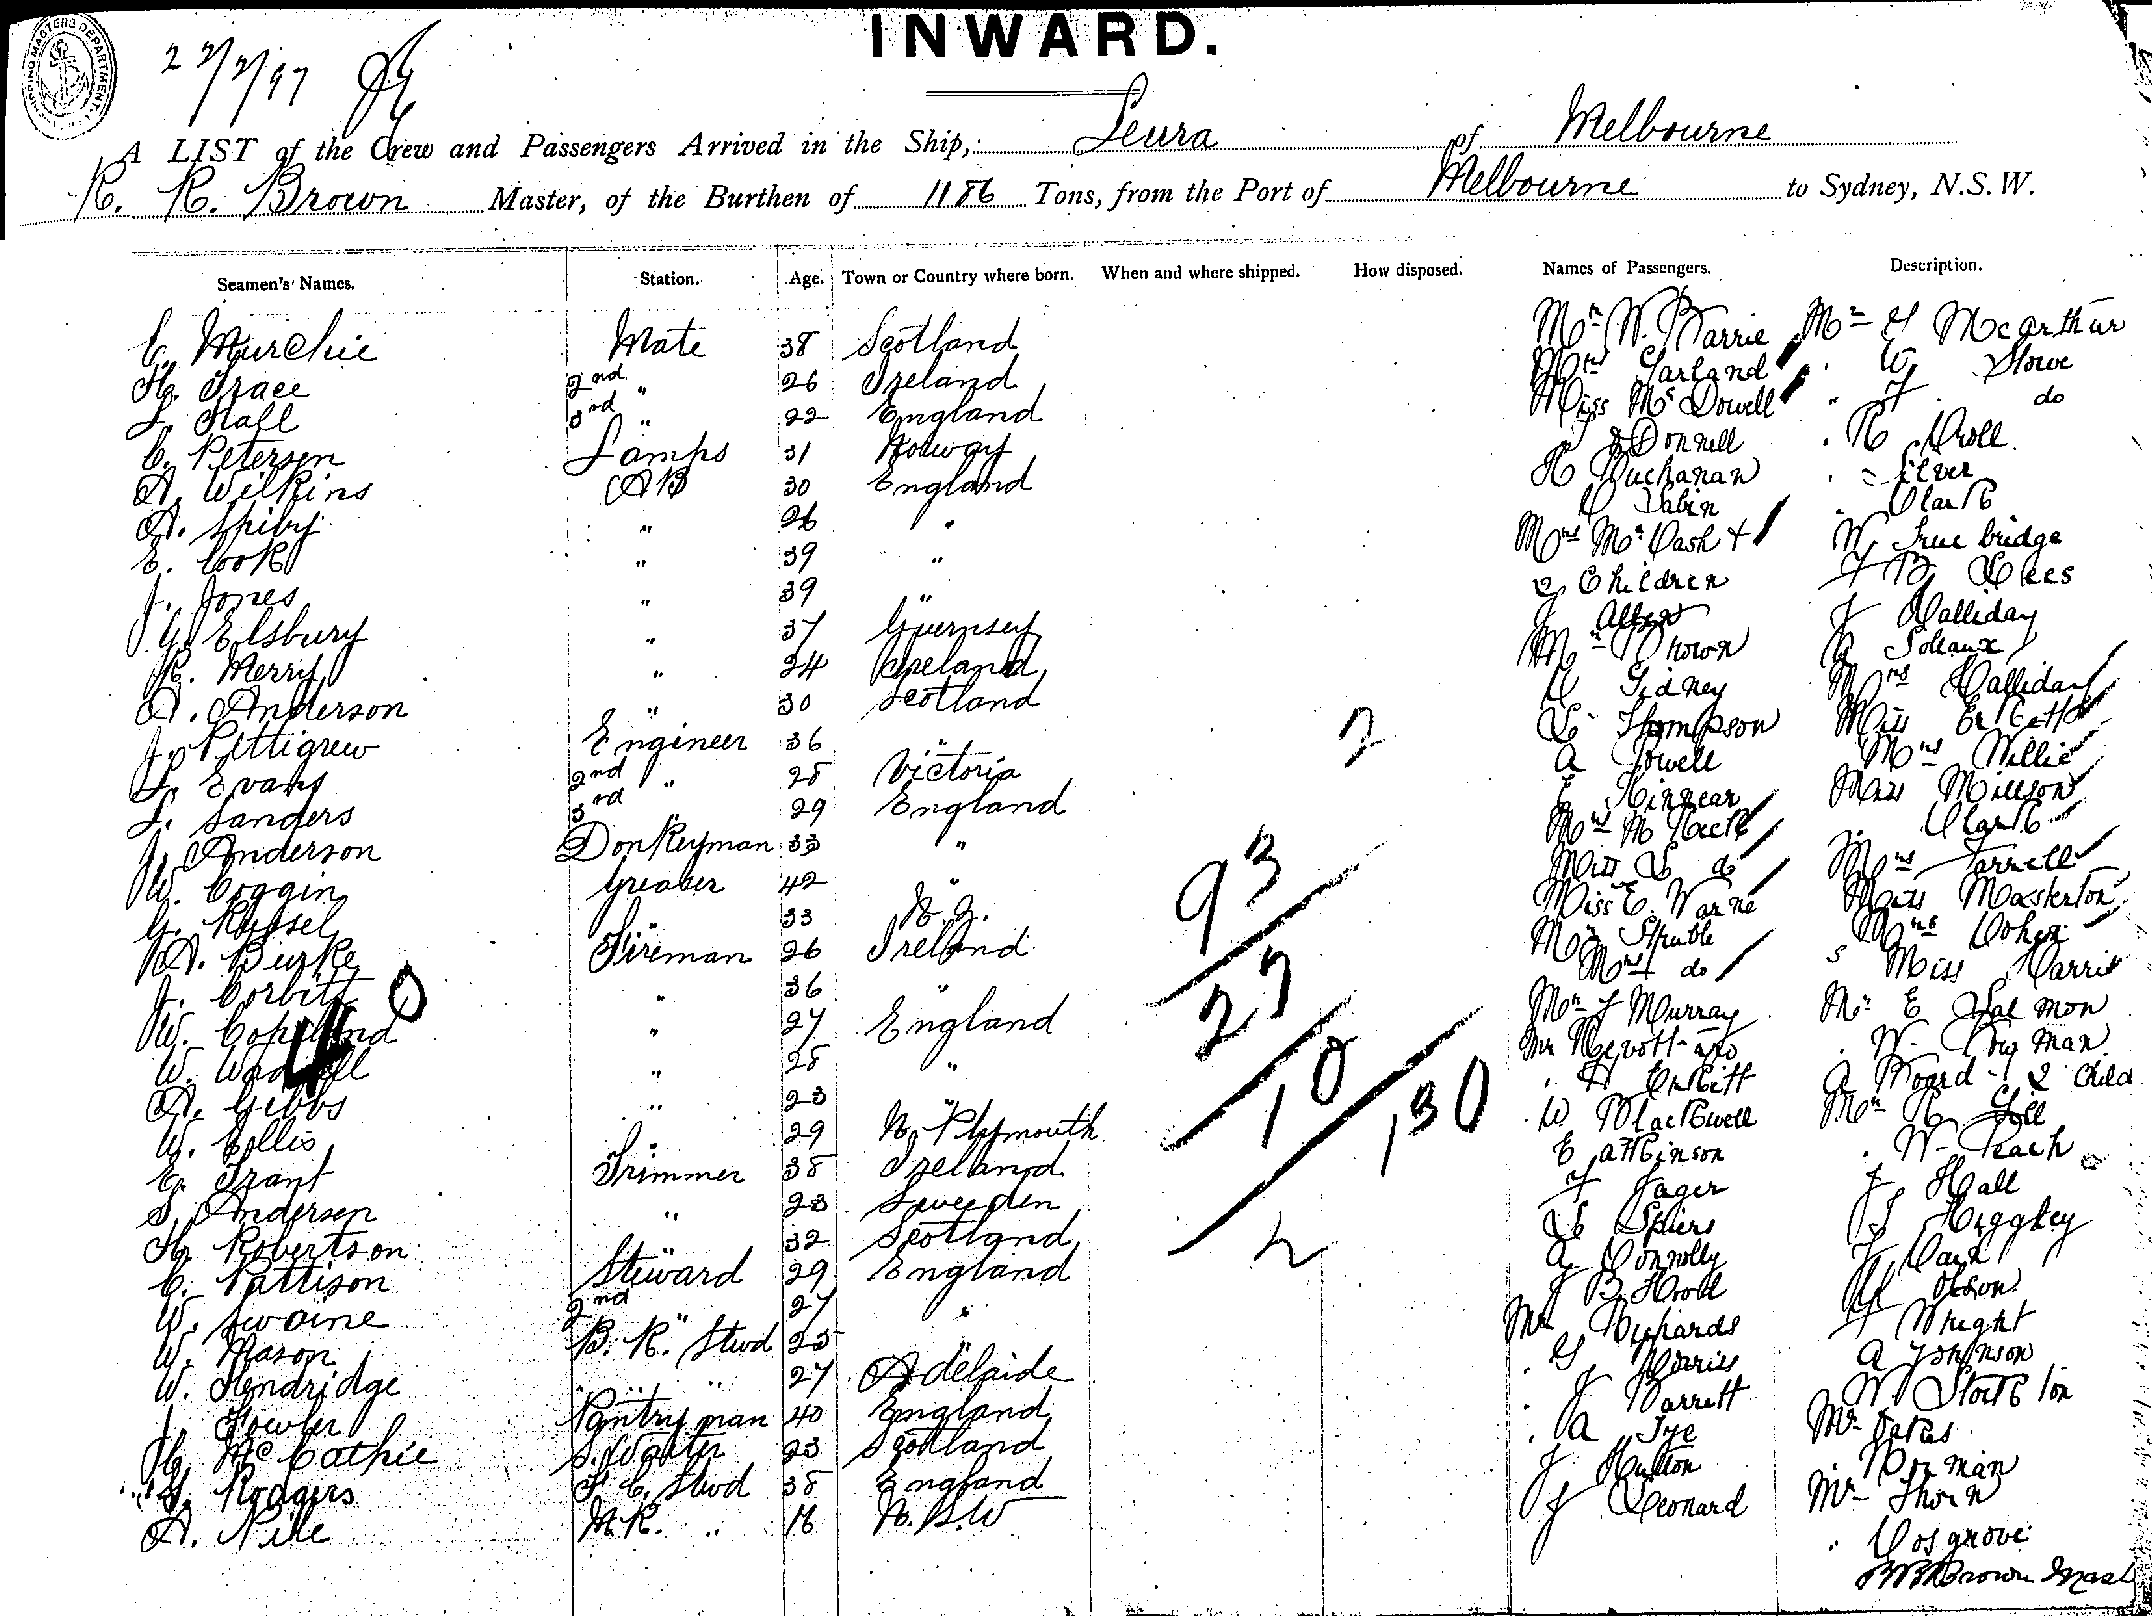 INWARD.
SHIPPING MASTERS DEPARTMENT
27/2/97
A LIST of the Crew and Passengers Arrived in the Ship, Leura of Melbourne
R. R. Brown Master, of the Burthen of 1186 Tons, from the Port of Melbourne to Sydney, N.S.W.
Seamen's Names. Station. Age. Town or Country where born. When and where shipped. How disposed. Names of Passengers. Description.
C. Murchie Mate 38 Scotland
H. Grace 2nd " 26 Ireland
L. Hall 3rd " 22 England
C. Petersen Lamps 31 Norway
A. Wilkins AB 30 England
A. Spiby " 26 "
E. Cook " 39 "
J. Jones " 39 "
G. Elsbury " 37 Guernsey
R. Merry " 24 Ireland
A. Anderson " 30 Scotland
J. Pettigrew Engineer 36 "
L. Evans 2nd " 28 Victoria
L. Sanders 3rd " 29 England
J. Anderson Donkeyman 33 "
W. Coggin Greaser 42 "
G. Russel " 33 N.Z.
A. Burke Fireman 26 Ireland
J. Corbitt " 36 "
W. Copeland " 27 England
W. " 28 "
A. Gibbs " 23 "
W. Ellis " 29 N. Plymouth
E. Grant Trimmer 38 Ireland
S. Andersen " 23 Sweeden
H. Robertson " 32 Scotland
C. Pattison Steward 29 England
W. Swaine 2nd " 27 "
W. Mason B. R. Stwd 25 "
W. Hendridge " " " 27 Adelaide
J. Fowler Pantryman 40 England
H. McCathie S. Waiter 23 Scotland
Rodgers F. C. Stwd 38 England
A. Nile M.R. " 16 N.S.W
2
93
27
10
130
2
Mr W. Barrie
Mrs Garland
Miss McDowell
J O'Donnell
R Buchanan
C Sabin
Mrs McCash +
2 Children
J Allen
Mr Brown
C Gidney
L Thompson
A Powell
E Kinnear
Mrs M Keck
Miss L do
Miss E. Warne
Mr Struble
Mrs do
Mr J Murray
Mr
H Corbitt
W Blackwell
E Atkinson
F Jager
L Spiers
A Connolly
J B Hood
Mr Richards
G Morris
J Barrett
A Tye
J Hulton
J Leonard
Mr G McArthur
" C Stowe
" F do
" R Croll
" = Silver
" Clark
W Truebridge
F B Lees
J Halliday
G Soleaux
Mrs Halliday
Miss
Mrs Willie
Miss Millson
" Clark
Mrs Farrell
Miss Masterton
Mrs Cohen
Miss Harris
Mr E Salmon
" W. Tinyman
A Board + 2 Child
Mr R Gill
" W. Peach
J Hall
J Higgley
J Carr
Olson
F Wright
A Johnson
W Stockton
Mr Oakes
" Norman
Mr Thorn
" Cosgrove
RR Brown Mast